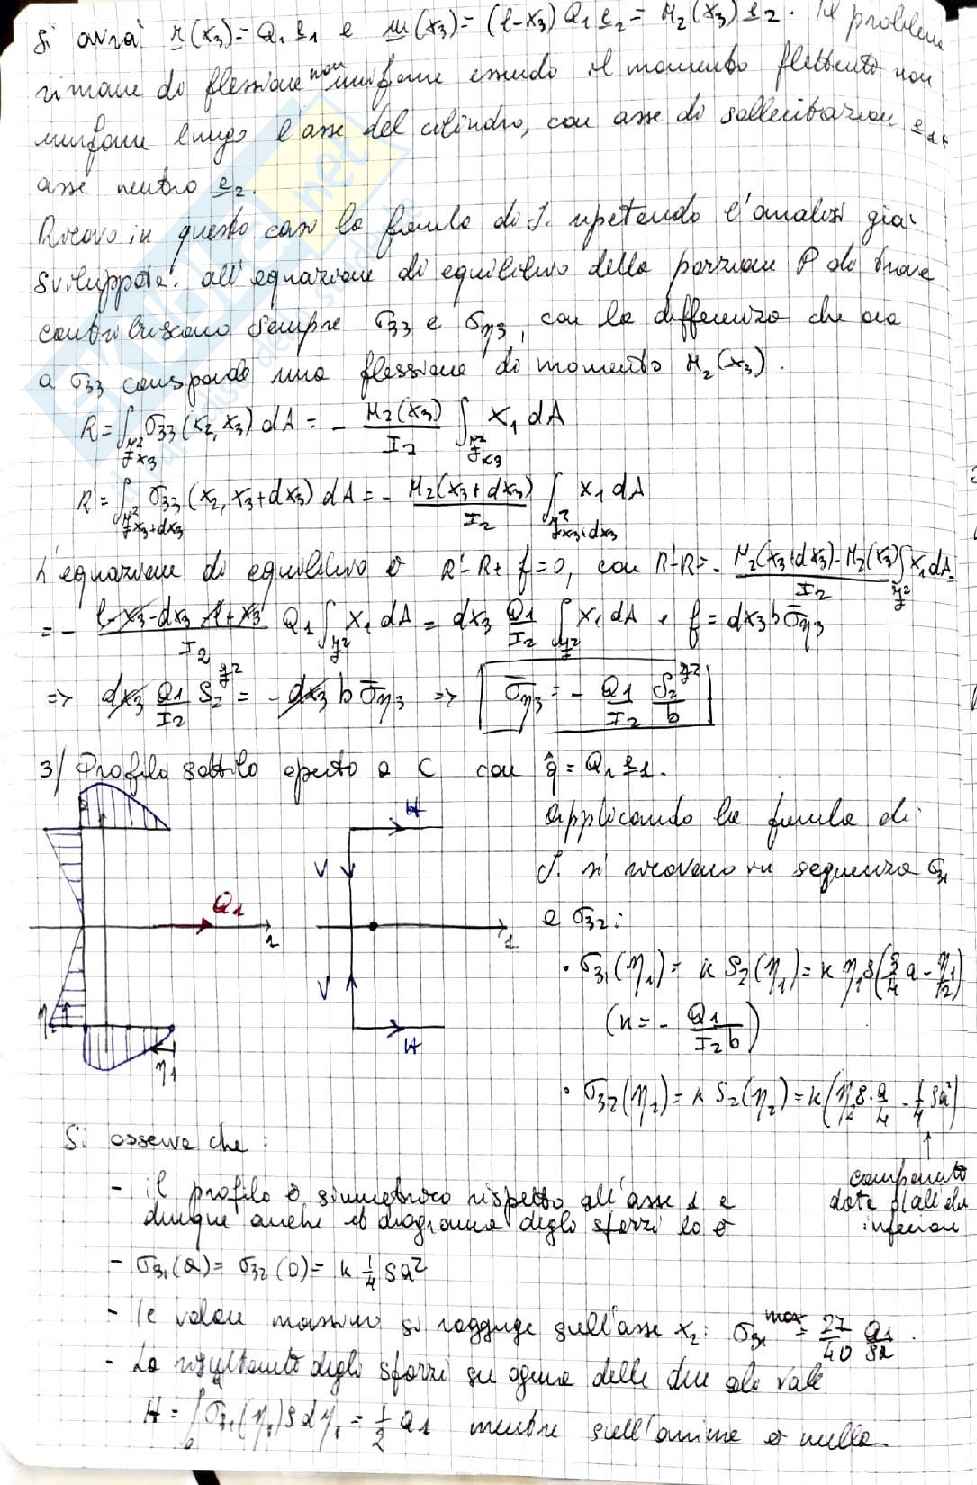 Si avrà r(x₃) = Q₁ e₁ e m(x₃) = (l-x₃) Q₁ e₂ = M₂(x₃) e₂. Il problema
rimane di flessione non uniforme essendo il momento flettente non
uniforme lungo l'asse del cilindro, con asse di sollecitazione e₁,
asse neutro e₂.
Ricavo in questo caso la formula di J. ripetendo l'analisi già
sviluppata: all'equazione di equilibrio della porzione P di trave
contribuiscono sempre σ₃₃ e ση₃, con la differenza che ora
a σ₃₃ corrisponde una flessione di momento M₂(x₃).
R = ∫ σ₃₃(x₂,x₃) dA = - M₂(x₃)/I₂ ∫ x₁ dA
R = ∫ σ₃₃(x₂, x₃+dx₃) dA = - M₂(x₃+dx₃)/I₂ ∫ x₁ dA
L'equazione di equilibrio è R'-R+f=0, con R'-R = - M₂(x₃+dx₃)-M₂(x₃)/I₂ ∫ x₁ dA =
= - l-x₃-dx₃-l+x₃/I₂ Q₁ ∫ x₁ dA = dx₃ Q₁/I₂ ∫ x₁ dA, f = dx₃ b σ̄η₃
=> dx₃ Q₁/I₂ S₂ = - dx₃ b σ̄η₃ => σ̄η₃ = - Q₁/I₂ S₂/b
3/ Profilo sottile aperto a C con q̂ = Q₁ e₁.
applicando la formula di
J. si ricavano in sequenza σ₃₁
e σ₃₂:
H
V
Q₁
1
1
V
H
η₁
• σ₃₁(η₁) = k S₂(η₁) = k η₁ s (3/4 a - η₁/2)
(k = - Q₁/I₂ b)
• σ₃₂(η₂) = k S₂(η₂) = k (η₂ s · a/4 - 1/4 s a²)
Si osserva che:
contributo
dato dall'ala
inferiore
- il profilo è simmetrico rispetto all'asse 1 e
dunque anche il diagramma degli sforzi lo è
- σ₃₁(a) = σ₃₂(0) = k 1/4 s a²
- Il valore massimo si raggiunge sull'asse x₂: σ₃₁ max = 27/40 Q₁/sa.
- La risultante degli sforzi su ognuna delle due ali vale
H = ∫ σ₃₁(η₁) s dη₁ = 1/2 Q₁ mentre sull'anima è nulla.